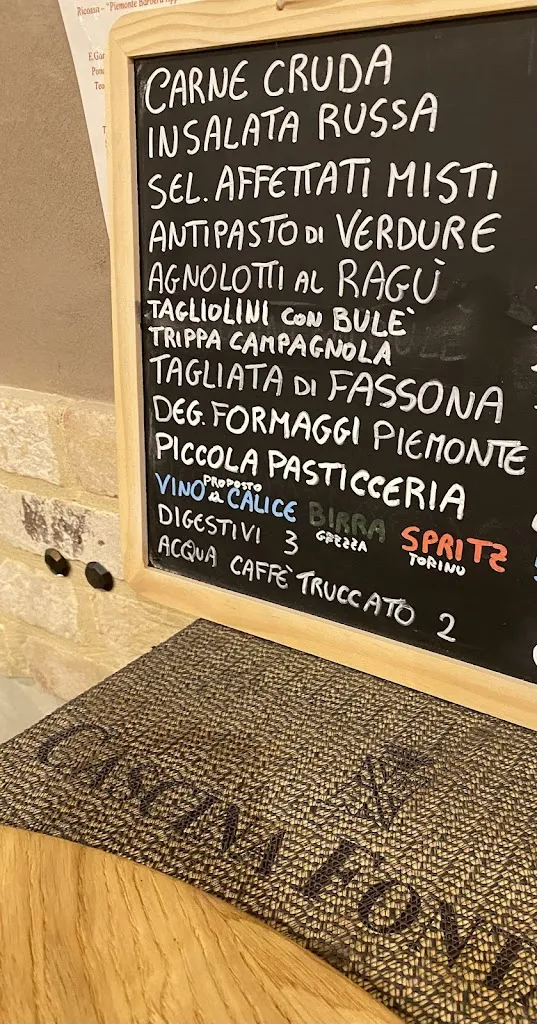 Ricossa - "Piemonte Barbera
CARNE CRUDA
INSALATA RUSSA
SEL. AFFETTATI MISTI
ANTIPASTO DI VERDURE
AGNOLOTTI AL RAGÙ
TAGLIOLINI CON BULE'
TRIPPA CAMPAGNOLA
TAGLIATA DI FASSONA
DEG. FORMAGGI PIEMONTE
PICCOLA PASTICCERIA
VINO PROPOSTO AL CALICE BIRRA GREZZA SPRITZ TORINO
DIGESTIVI 3
ACQUA CAFFÈ TRUCCATO 2
CASCINA FONT